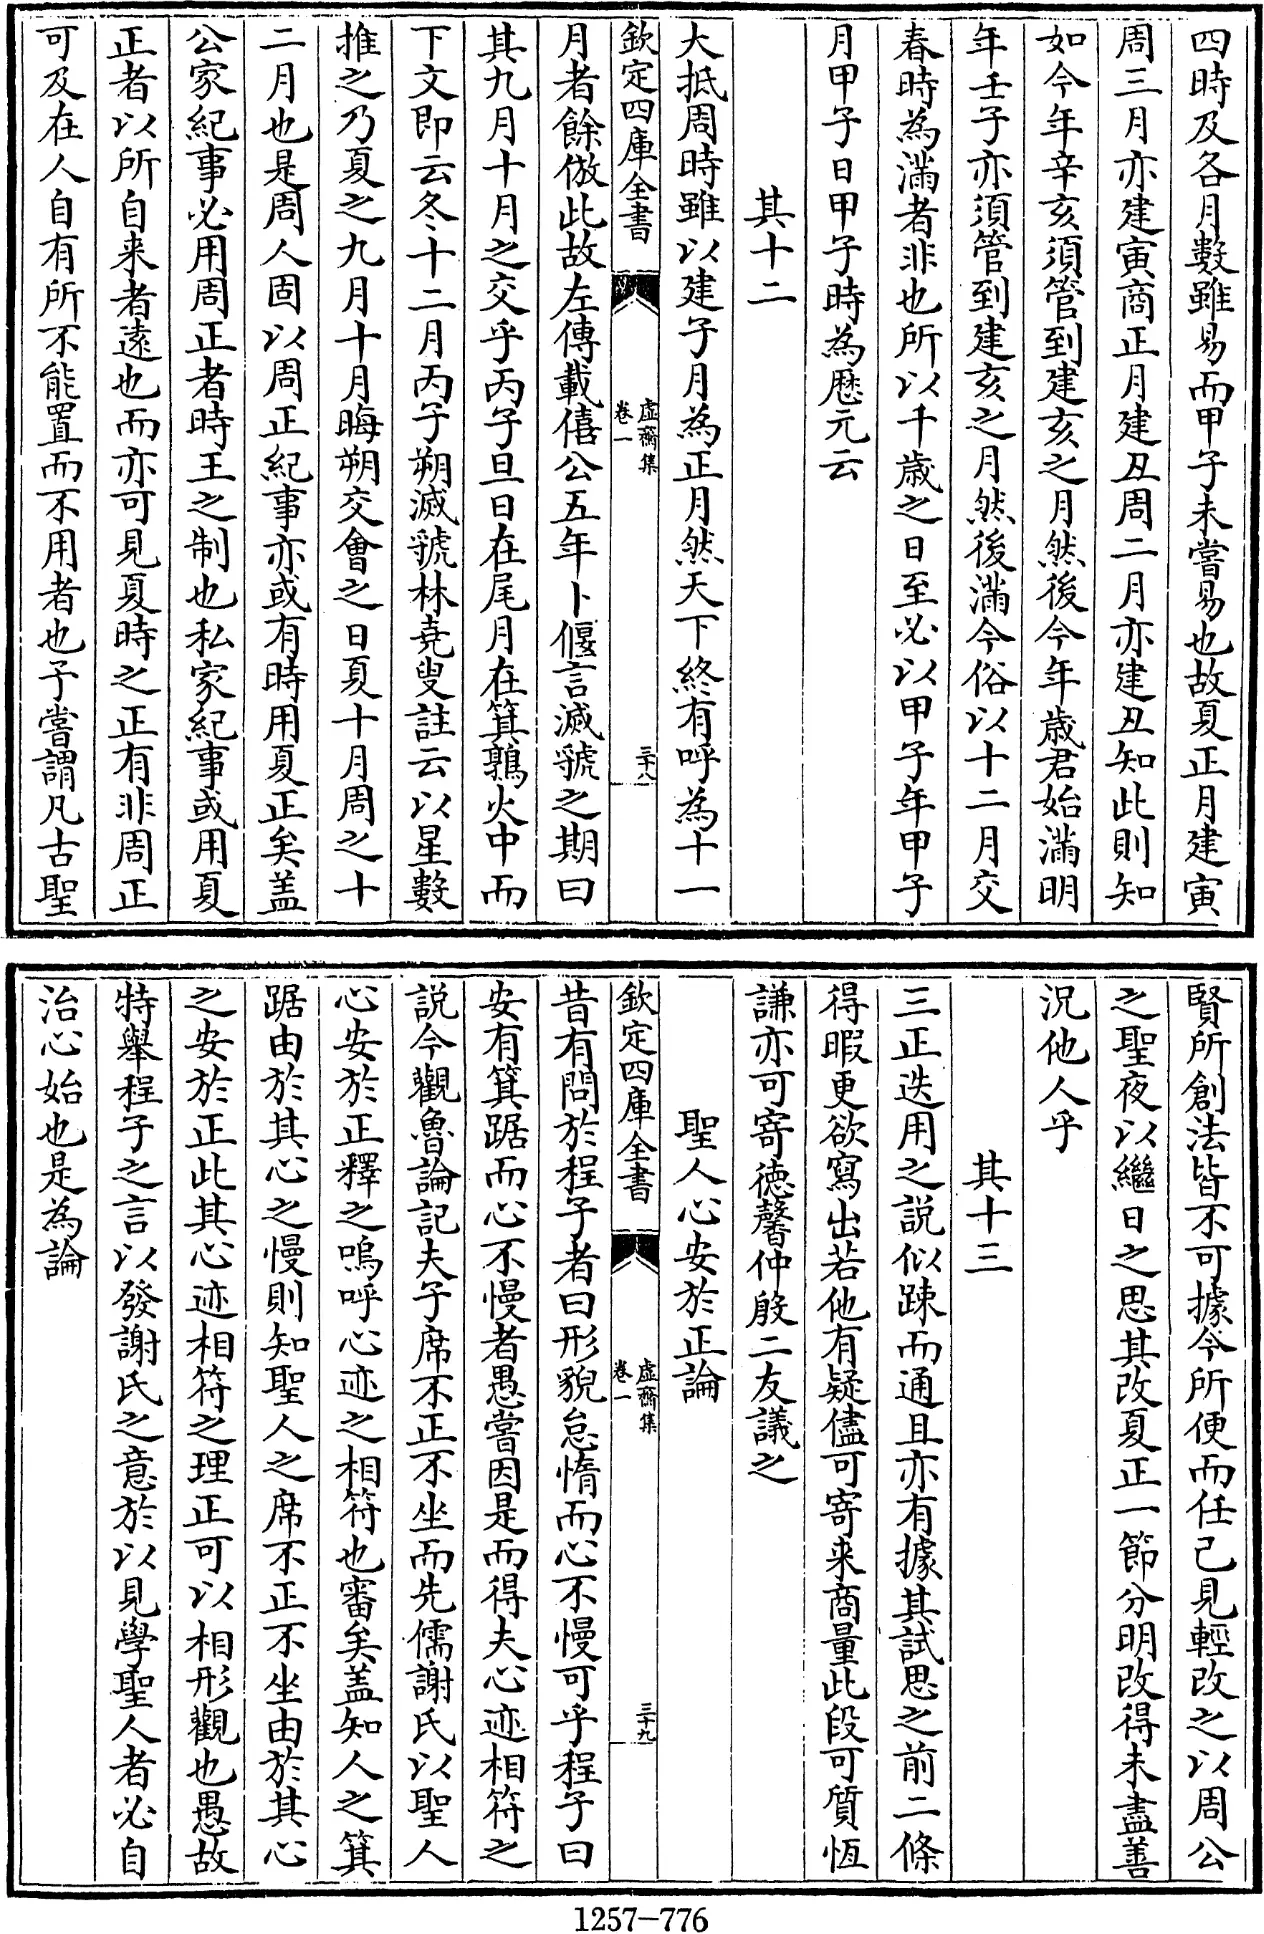 四時及各月數雖易而甲子未嘗易也故夏正月建寅
周三月亦建寅商正月建丑周二月亦建丑知此則知
如今年辛亥須管到建亥之月然後今年歲君始滿明
年壬子亦須管到建亥之月然後滿今俗以十二月交
春時為滿者非也所以千歲之日至必以甲子年甲子
月甲子日甲子時為歷元云
其十二
大抵周時雖以建子月為正月然天下終有呼為十一
欽定四庫全書
虛齋集
卷一
三十八
月者餘倣此故左傳載僖公五年卜偃言滅虢之期曰
其九月十月之交乎丙子旦日在尾月在箕鶉火中而
下文即云冬十二月丙子朔滅虢林堯叟註云以星數
推之乃夏之九月十月晦朔交會之日夏十月周之十
二月也是周人固以周正紀事亦或有時用夏正矣盖
公家紀事必用周正者時王之制也私家紀事或用夏
正者以所自来者遠也而亦可見夏時之正有非周正
可及在人自有所不能置而不用者也予嘗謂凡古聖
賢所創法皆不可據今所便而任已見輕改之以周公
之聖夜以繼日之思其改夏正一節分明改得未盡善
況他人乎
其十三
三正迭用之說似踈而通且亦有據其試思之前二條
得暇更欲寫出若他有疑儘可寄来商量此段可質恆
謙亦可寄德馨仲殷二友議之
聖人心安於正論
欽定四庫全書
虛齋集
卷一
三十九
昔有問於程子者曰形貌怠惰而心不慢可乎程子曰
安有箕踞而心不慢者愚嘗因是而得夫心迹相符之
說今觀魯論記夫子席不正不坐而先儒謝氏以聖人
心安於正釋之嗚呼心迹之相符也審矣盖知人之箕
踞由於其心之慢則知聖人之席不正不坐由於其心
之安於正此其心迹相符之理正可以相形觀也愚故
特舉程子之言以發謝氏之意於以見學聖人者必自
治心始也是為論
1257-776